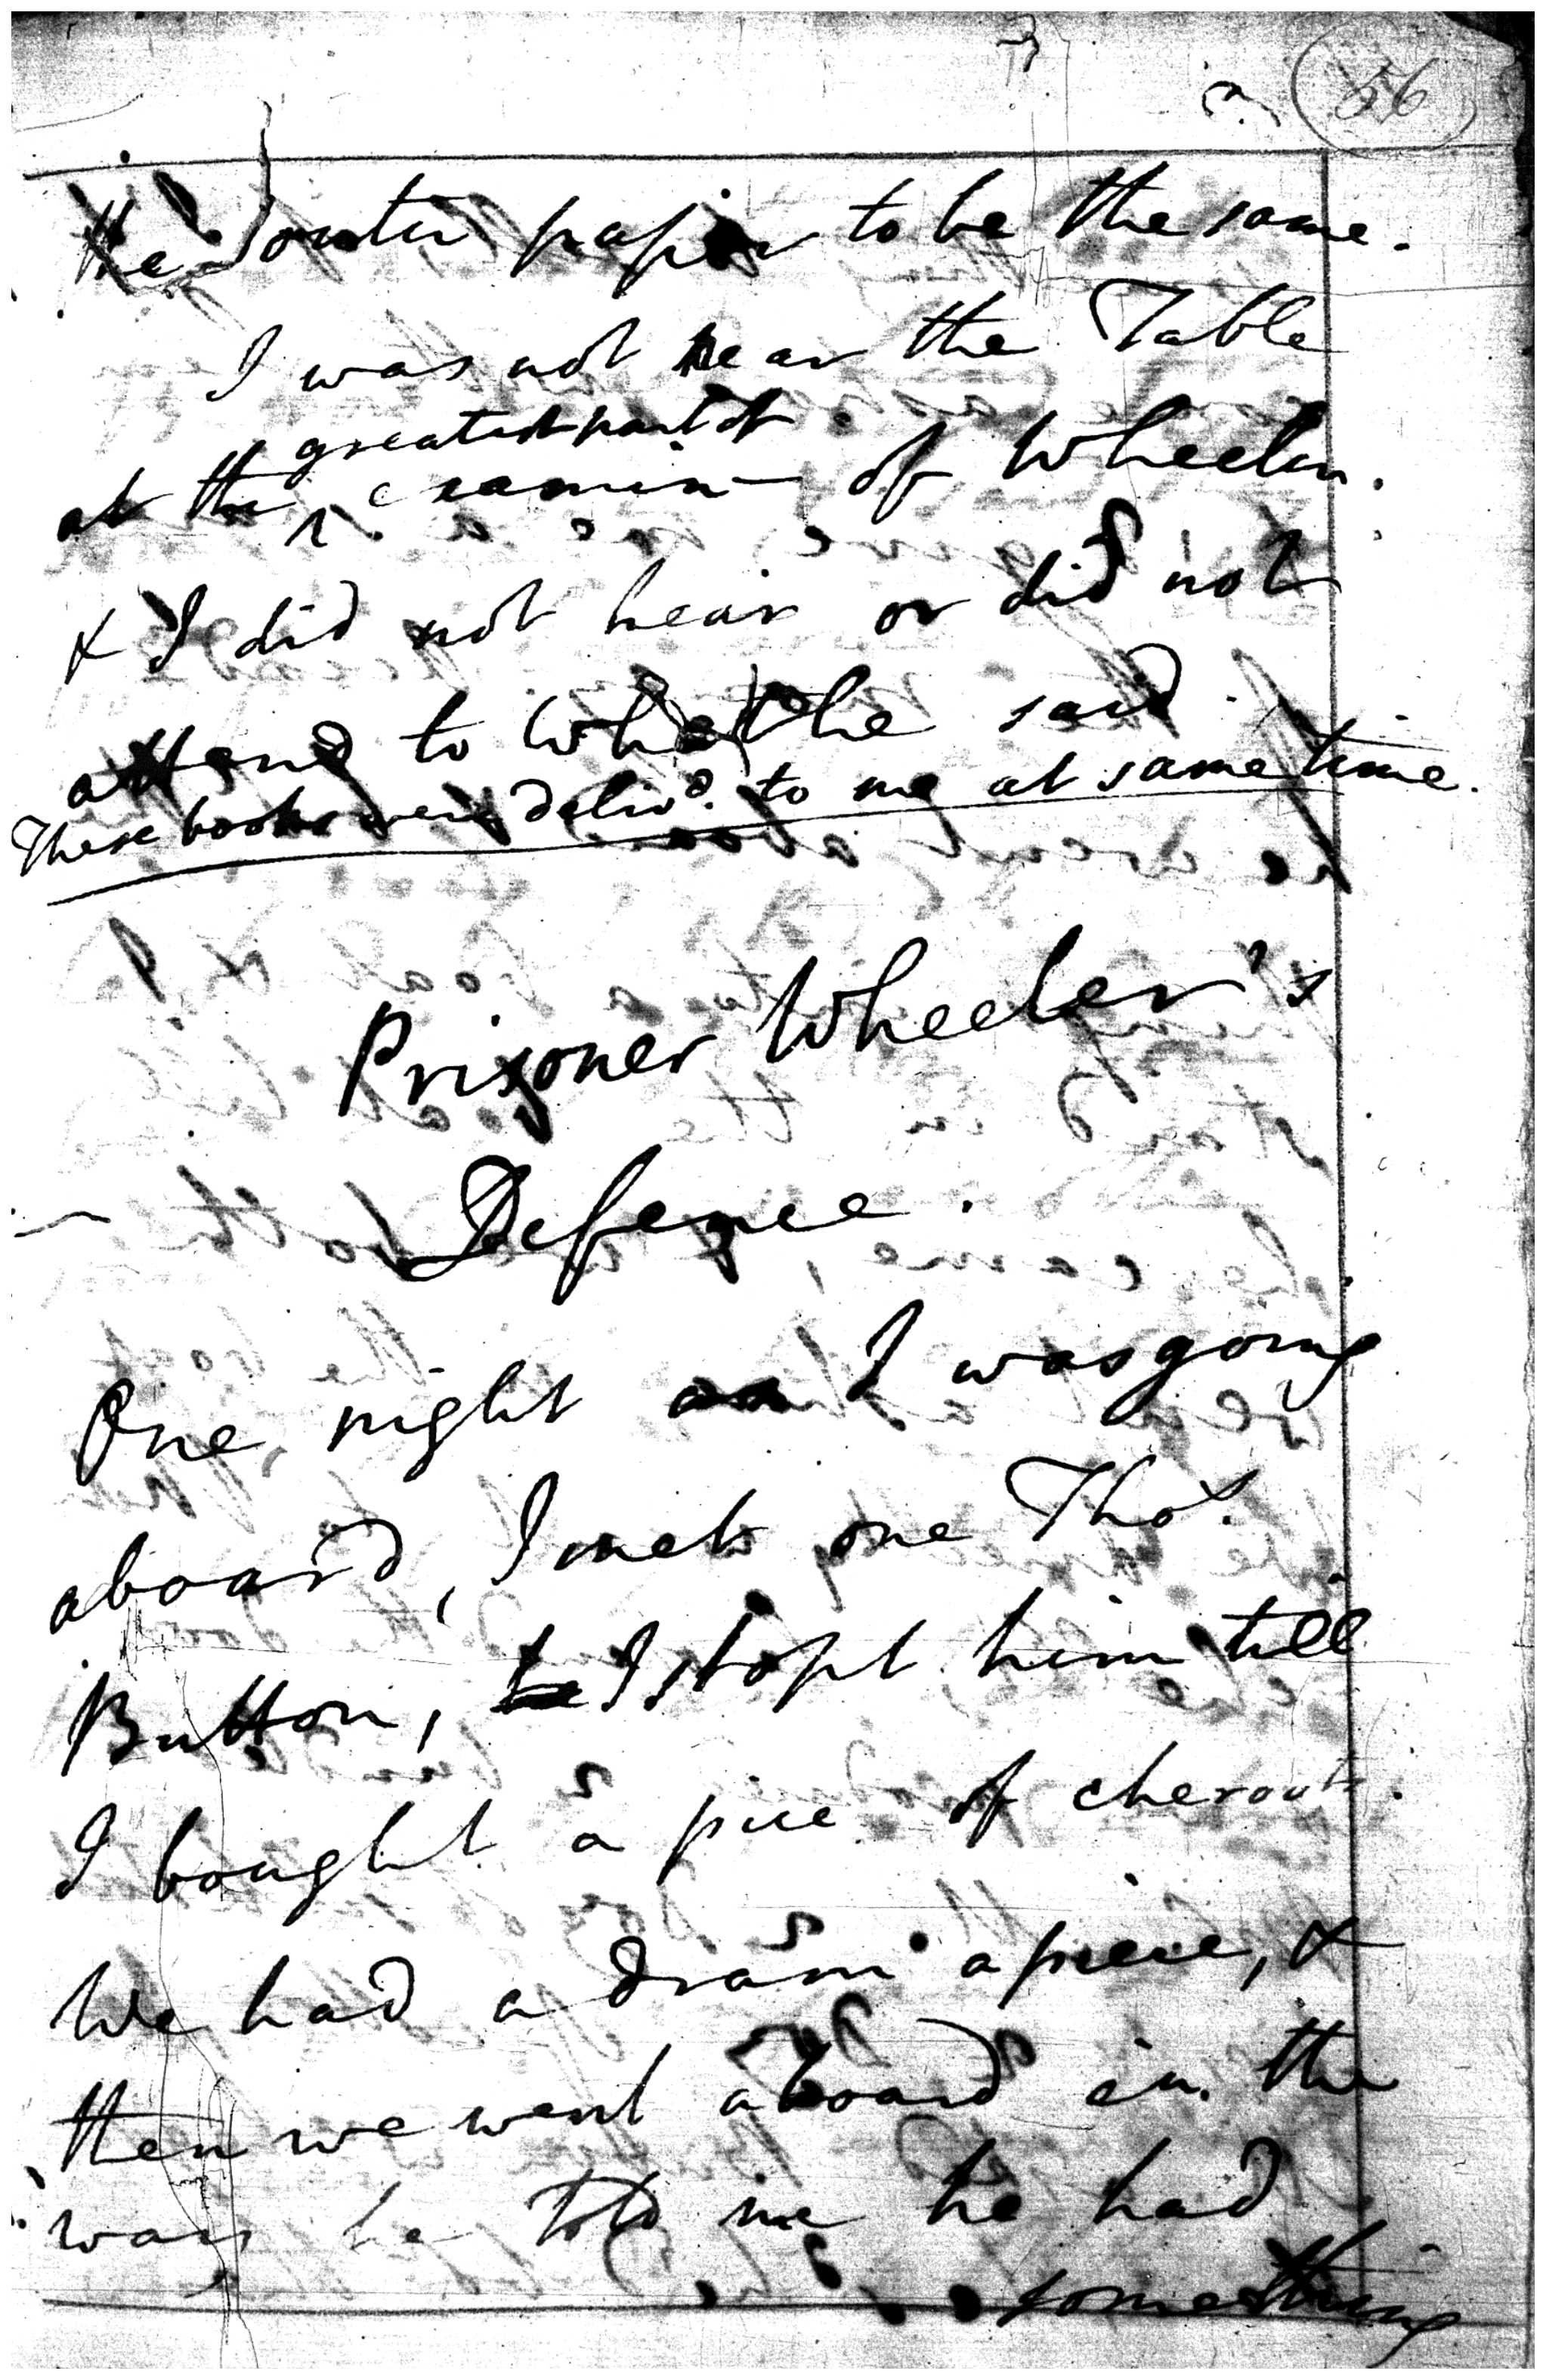 56
the outer paper to be the same.
I was not near the Table
greatest part of
at the ^ examin of Wheeler.
& I did not hear or did not
attend to what he said
These books were delivd. to me at same time.
Prisoner Wheeler's
Defence.
One night as I was going
aboard, I met one Thos.
Button, I stopt him till
I bought a pice of cheroots.
We had a dram apiece, &
then we went aboard in the
way he told me he had
something